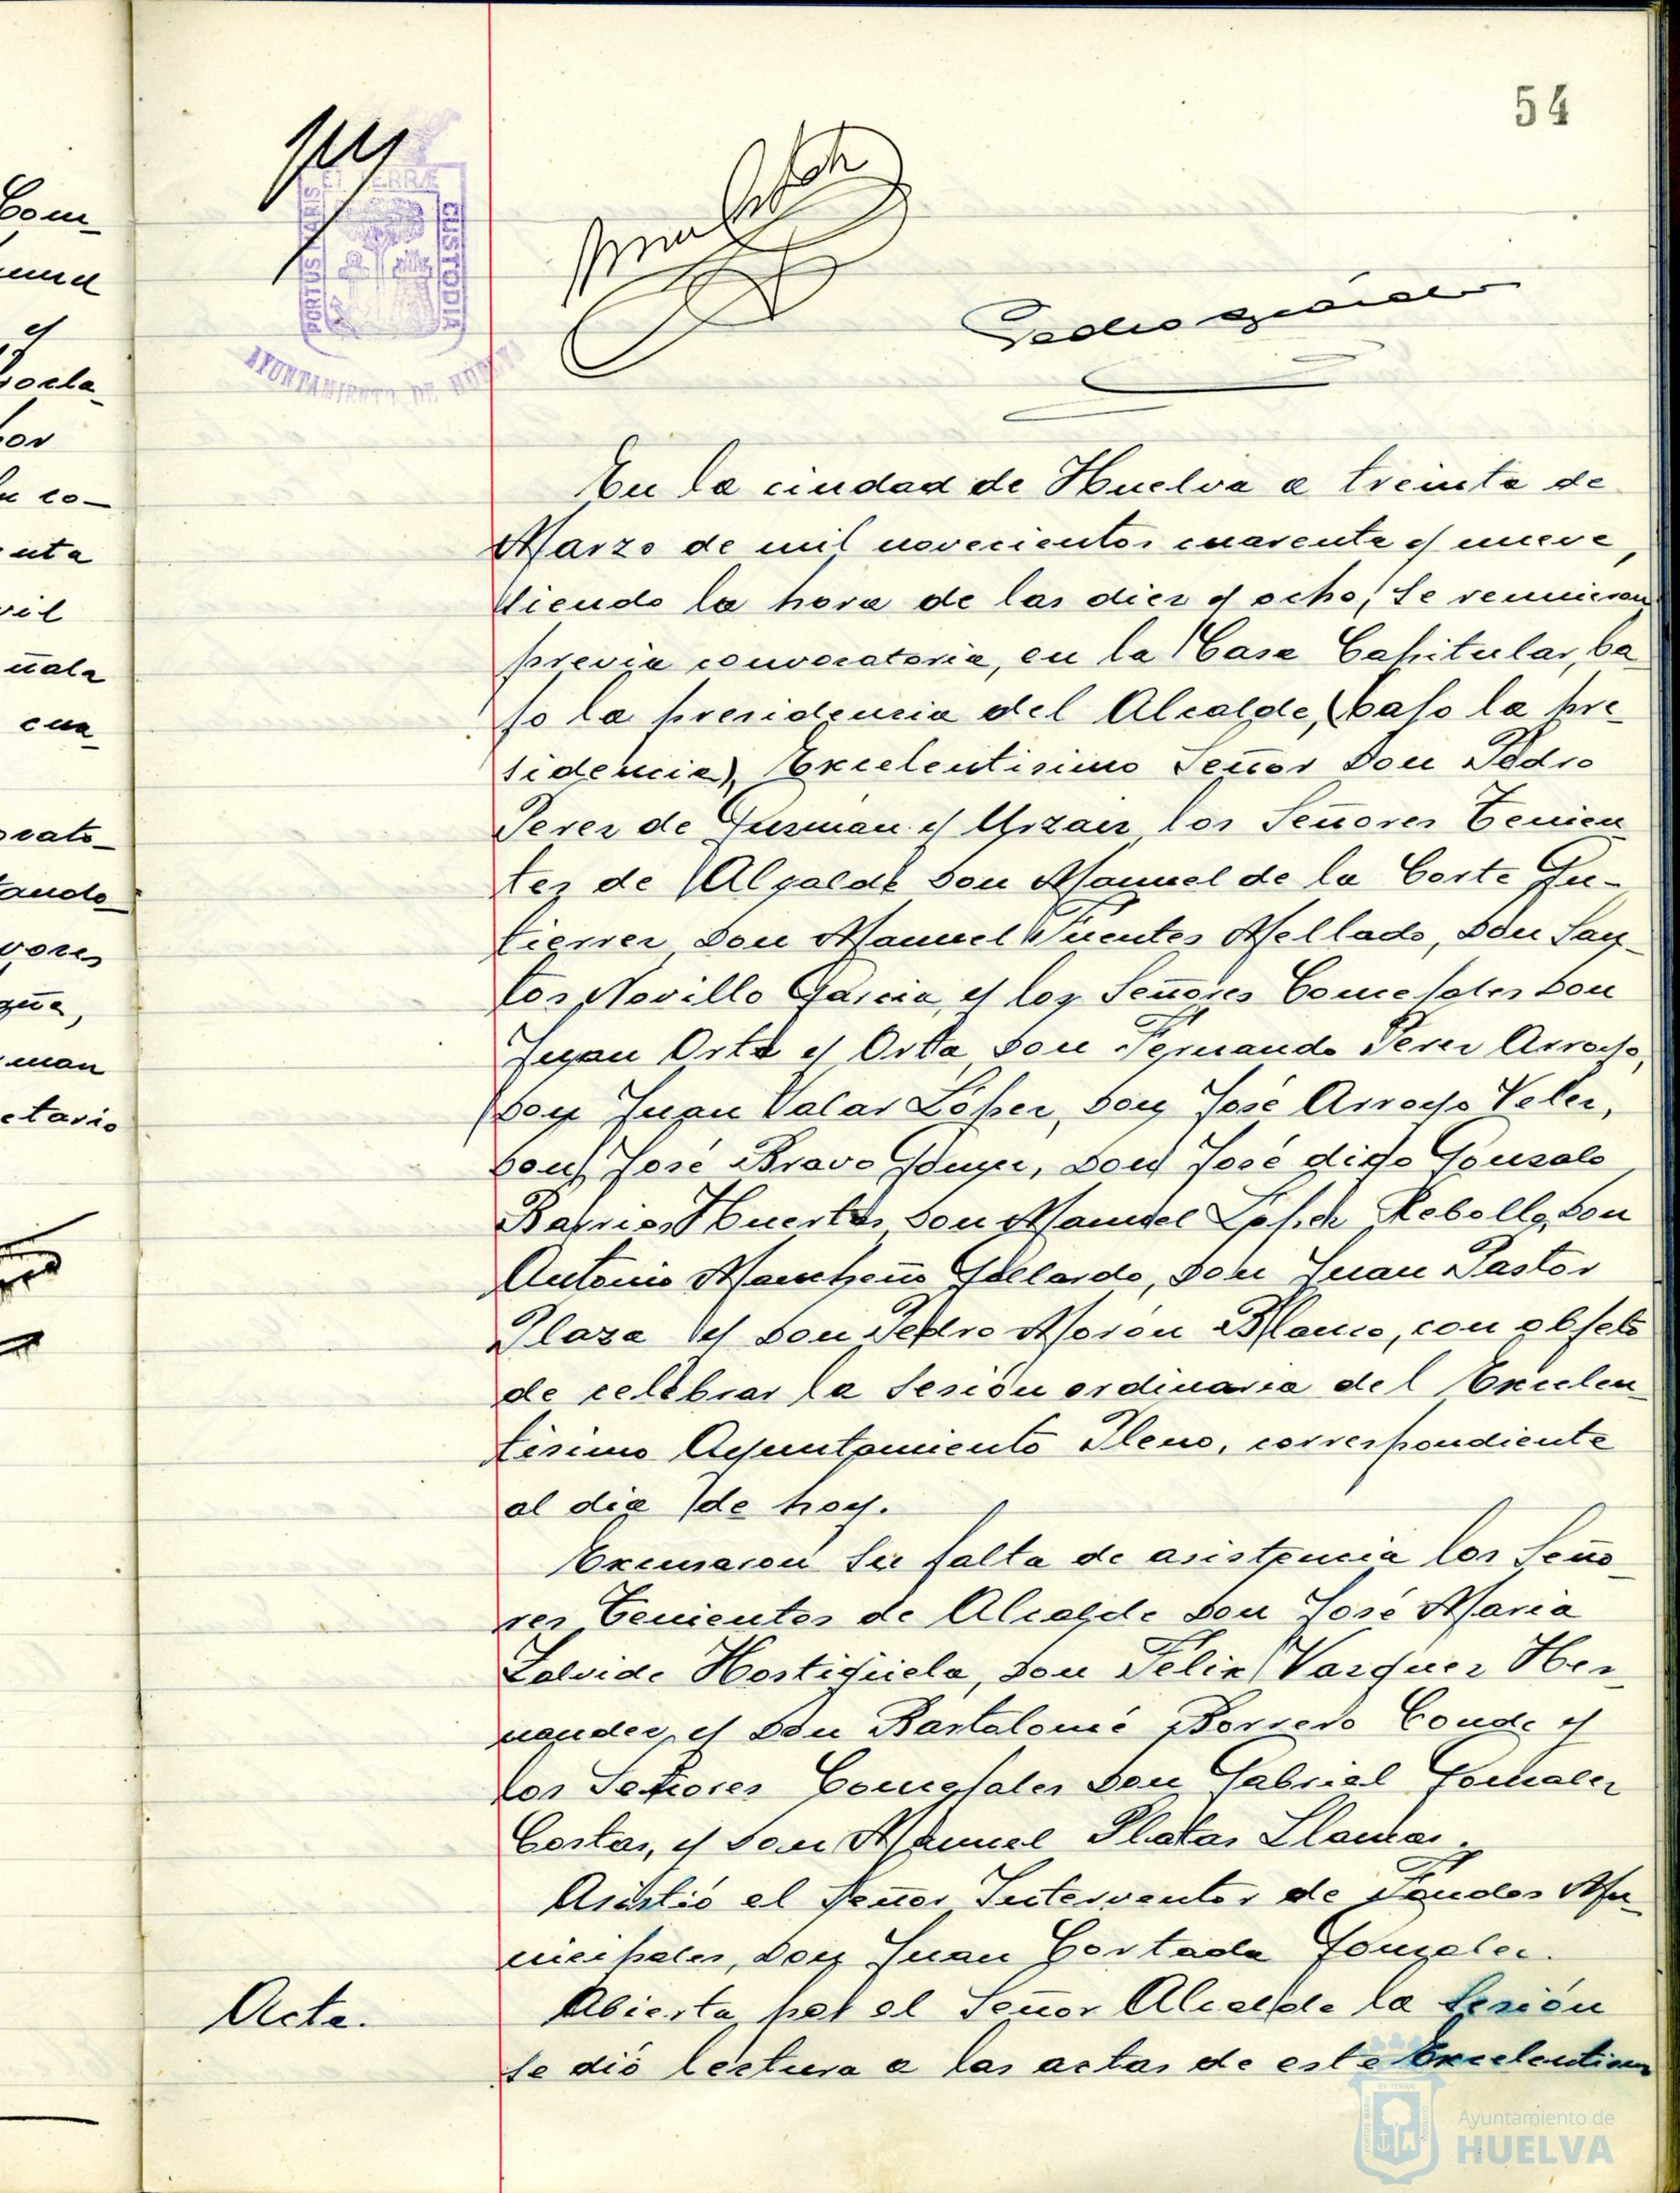 54
PORTUS MARIS ET TERRÆ CUSTODIA
AYUNTAMIENTO DE HUELVA
En la ciudad de Huelva a treinta de
Marzo de mil novecientos cuarenta y nueve,
siendo la hora de las diez y ocho, se reunieron
previa convocatoria, en la Casa Capitular, ba
jo la presidencia del Alcalde, (bajo la pre-
sidencia), Excelentisimo Señor Don Pedro
Perez de Guzmán y Urzaiz, los Señores Tenien
tes de Alcalde Don Manuel de la Corte Gu-
tierrez, Don Manuel Fuentes Mellado, Don San-
tos Novillo Garcia, y los Señores Concejales Don
Juan Orta y Orta, Don Fernando Perez Arroyo,
Don Juan Salas López, Don José Arroyo Velez,
Don José Bravo Don José digo Gonzalo
Barrios Huertas, Don Manuel Lopez Rebollo, Don
Antonio Mancheño Gallardo, Don Juan Pastor
Plaza y Don Pedro Morón Blanco, con objeto
de celebrar la sesión ordinaria del Excelen
tisimo Ayuntamiento Pleno, correspondiente
al dia de hoy.
Excusaron su falta de asistencia los Seño-
res Tenientes de Alcalde Don José Maria
Zalvide Hostigüela, Don Felix Vazquez Her-
nandez, y Don Bartolomé Borrero Conde y
los Señores Concejales Don Gabriel Gonzalez
Costas, y Don Manuel Platas Llamas.
Asistió el Señor Interventor de Fondos Mu-
nicipales, Don Juan Cortada Gonzalez.
Acta.
Abierta por el Señor Alcalde la sesión
se dió lectura a las actas de este Excelentisimo
Com-
y
co-
cua
mon
etario
Ayuntamiento de
HUELVA